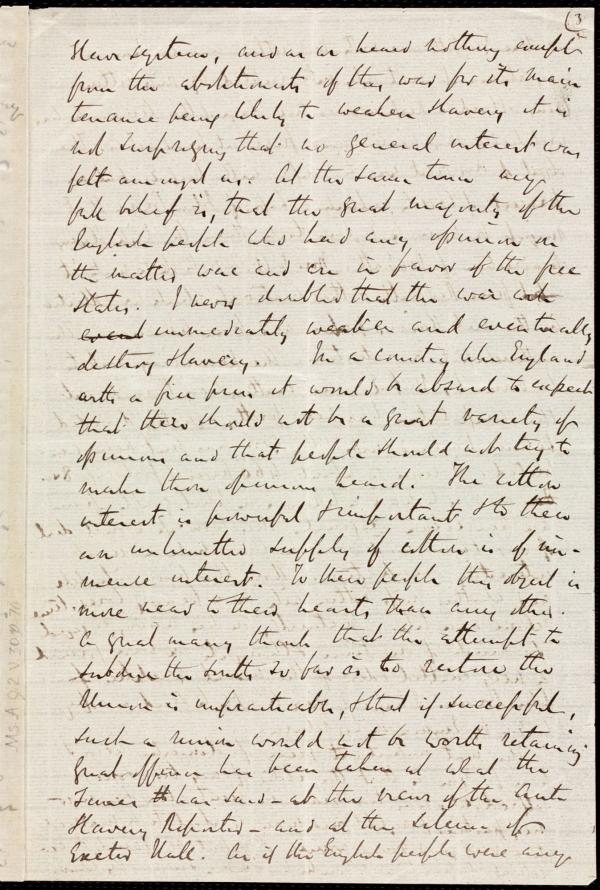 3
Slave system, and as we heard nothing except
from the abolitionists of this war for its main
tenance being likely to weaken Slavery it is
not surprizing that no general interest was
felt amongst us. At the same time my
full belief is, that the great majority of the
English people who had any opinion on
the matter were and are in favor of the free
States. I never doubted that the war
immediately weaken and eventually
destroy Slavery. In a country like England
with a free press it would be absurd to expect
that there should not be a great variety of
opinions and that people should not try to
make those opinions heard. The cotton
interest is powerful & important & to them
an unlimited supply of cotton is of im-
mense interest. To these people this object is
more near to their hearts than any other.
A great many think that the attempt to
subdue the South so far as to restore the
Union is impracticable, & that if successful,
such a union would not be worth retaining
Great offence has been taken at what the
Times has said - at the views of the Anti
Slavery Reporter - and at the silence of
Exeter Hall. As if the English people were any
Ms A 9.2 v 30